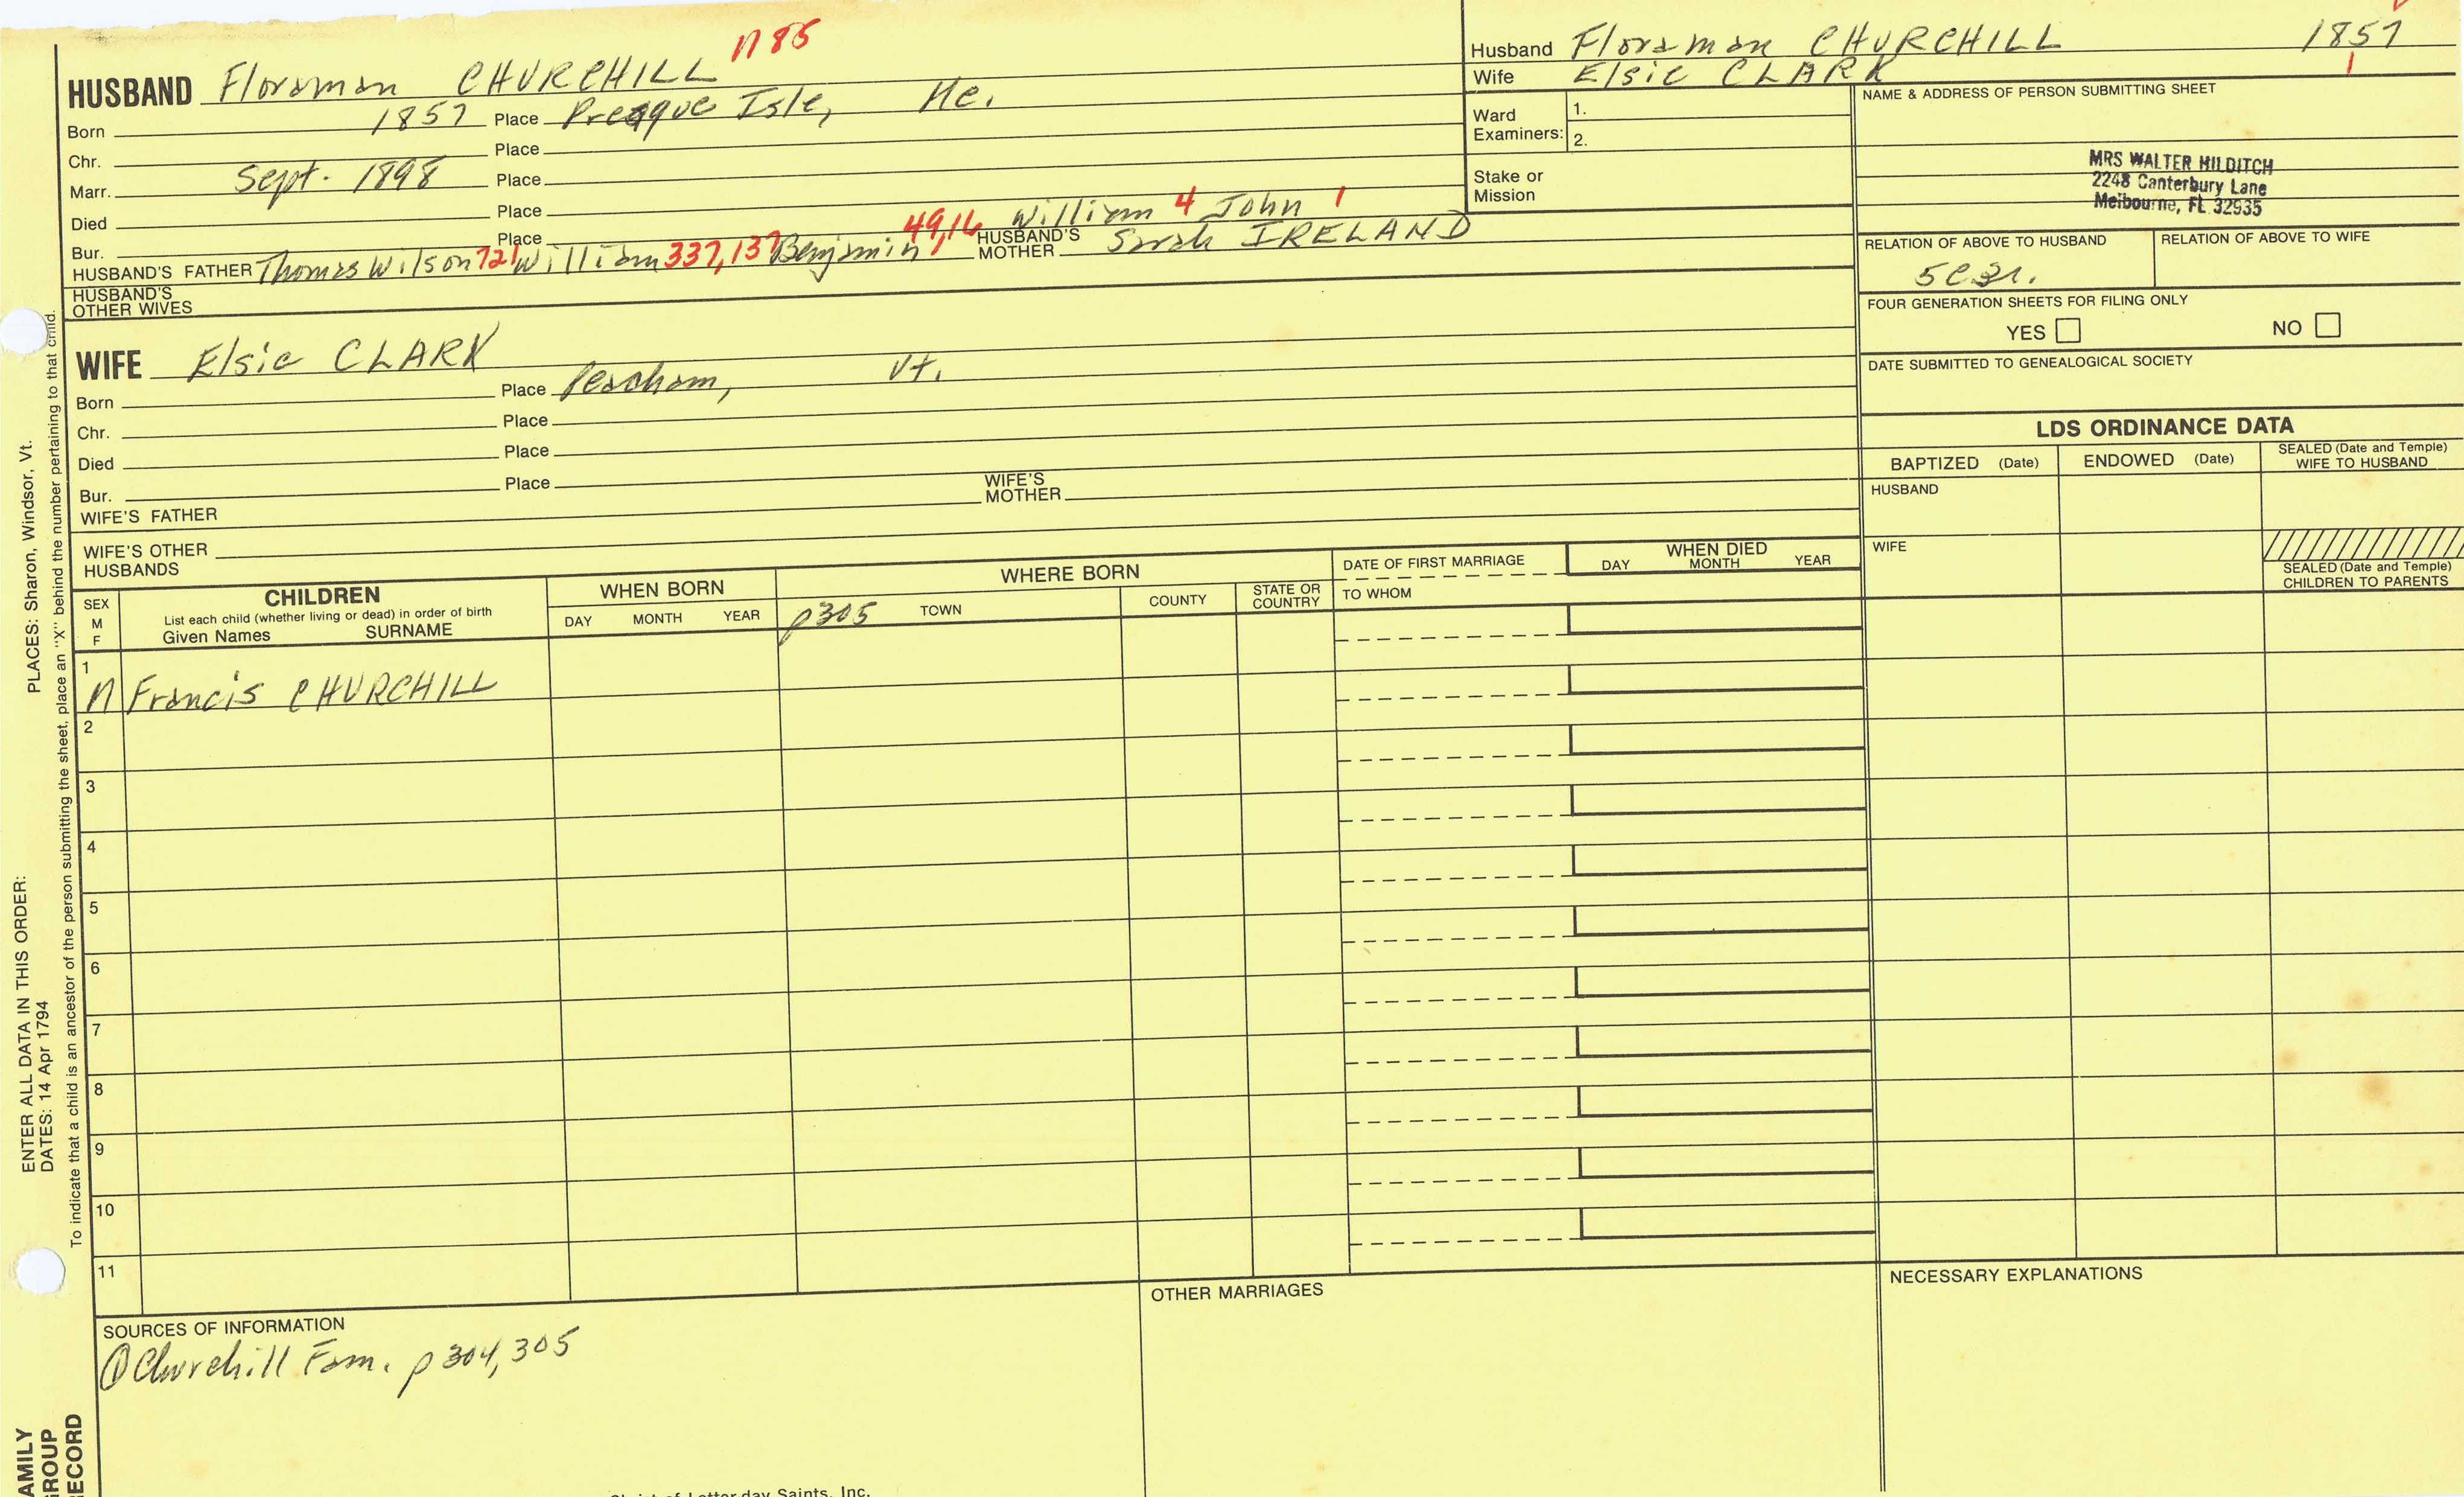 HUSBAND Floraman CHURCHILL n85
Born 1857 Place Presque Isle, Me.
Chr. Place
Marr. Sept. 1898 Place
Died Place
Bur. Place
49,16 William 4 John 1
HUSBAND'S FATHER Thomas Wilson 721 William 337,137 Benjamin HUSBAND'S MOTHER Sarah IRELAND
HUSBAND'S OTHER WIVES
WIFE Elsie CLARK
Born Place Peacham, Vt.
Chr. Place
Died Place
Bur. Place
WIFE'S FATHER WIFE'S MOTHER
WIFE'S OTHER HUSBANDS
Husband Floraman CHURCHILL 1857
Wife Elsie CLARK 1
Ward Examiners: 1.
2.
Stake or Mission
NAME & ADDRESS OF PERSON SUBMITTING SHEET
MRS WALTER HILDITCH
2248 Canterbury Lane
Melbourne, FL 32935
RELATION OF ABOVE TO HUSBAND RELATION OF ABOVE TO WIFE
FOUR GENERATION SHEETS FOR FILING ONLY
YES NO
DATE SUBMITTED TO GENEALOGICAL SOCIETY
LDS ORDINANCE DATA
BAPTIZED (Date) ENDOWED (Date) SEALED (Date and Temple) WIFE TO HUSBAND
HUSBAND
WIFE
SEALED (Date and Temple) CHILDREN TO PARENTS
SEX M F
CHILDREN
List each child (whether living or dead) in order of birth
Given Names SURNAME
WHEN BORN
DAY MONTH YEAR
WHERE BORN
p305 TOWN COUNTY STATE OR COUNTRY
DATE OF FIRST MARRIAGE
TO WHOM
WHEN DIED
DAY MONTH YEAR
1
M Francis CHURCHILL
2
3
4
5
6
7
8
9
10
11
SOURCES OF INFORMATION
① Churchill Fam. p 304, 305
OTHER MARRIAGES
NECESSARY EXPLANATIONS
ENTER ALL DATA IN THIS ORDER:
DATES: 14 Apr 1794
PLACES: Sharon, Windsor, Vt.
To indicate that a child is an ancestor of the person submitting the sheet, place an "X" behind the number pertaining to that child.
AMILY
ROUP
ECORD
Saints, Inc.